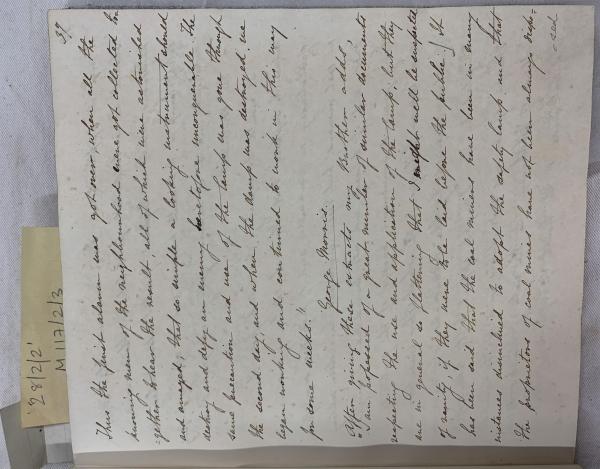 39
Thus the first alarm was got over, when all the
knowing men of the neighbourhood were got collected to-
-gether to hear the result all of which were astonished
and amazed, that so simple a looking instrument should
destroy and defy an enemy heretofore unconquerable. The
same precaution and use of the lamp was gone through
the second day, and when the damp was destroyed, we
began working and continued to work in this way
for some weeks."
George Morris.
After giving these extracts my Brother adds,
"I am possessed of a great number of similar documents
respecting the use and application of the lamp, but they
are in general so flattering that I might well be suspected
of vanity, if they were to be laid before the public.] It
has been said that the coal miners have been in many
instances disinclined to adopt the safety lamp and that
the proprietors of coal mines have not been always
'28/2/2'
M 117/2/3